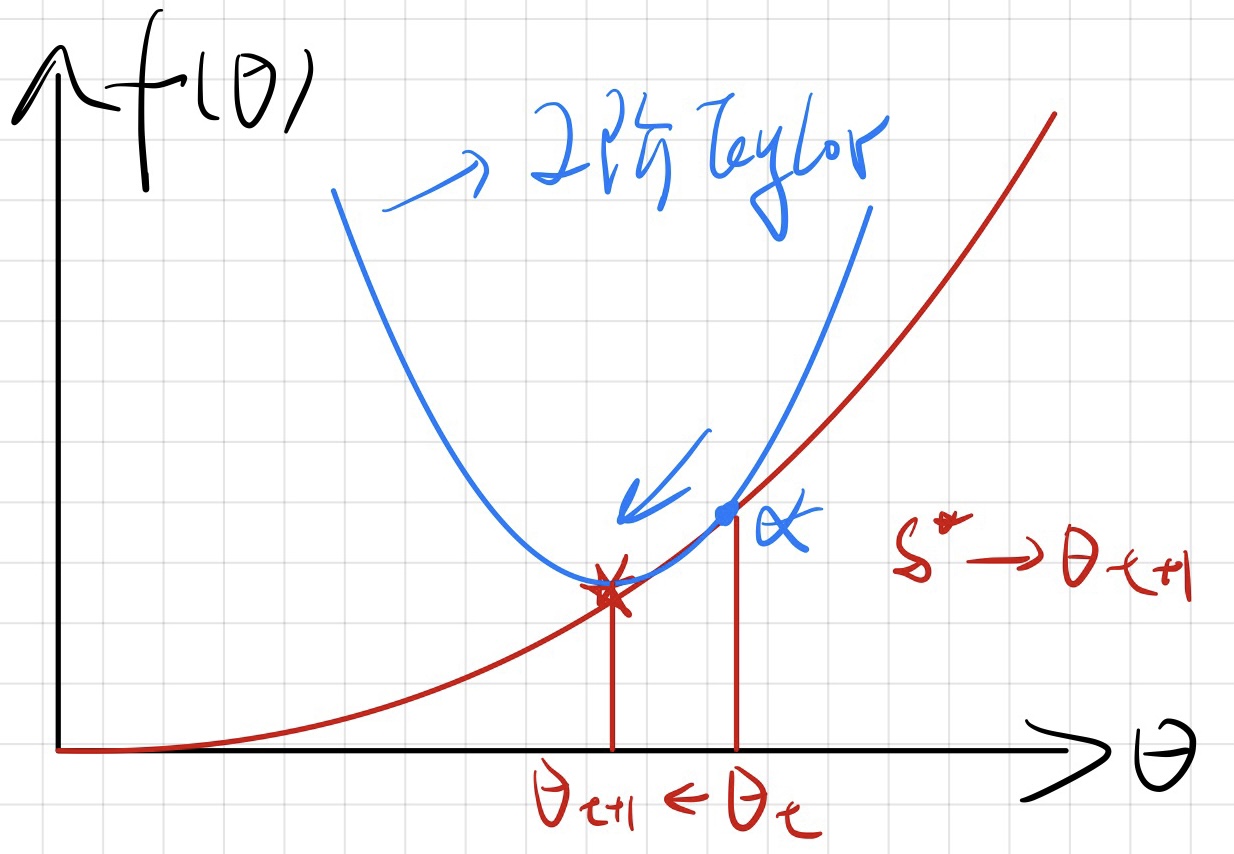 f(θ)
→ 2阶 Taylor
α
S* → θt+1
θ
θt+1 ← θt